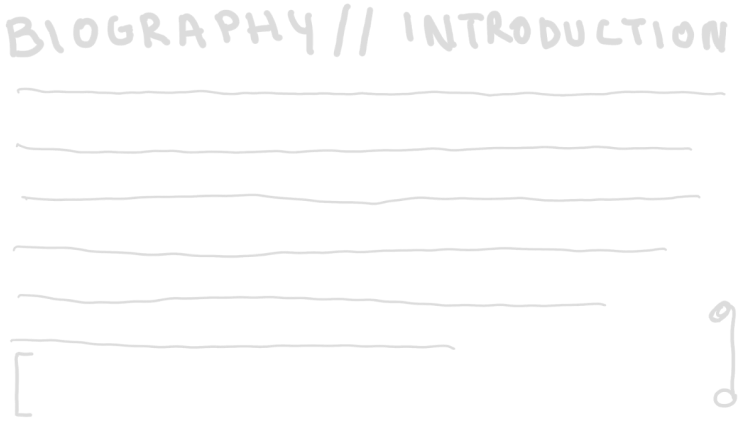 BIOGRAPHY // INTRODUCTION